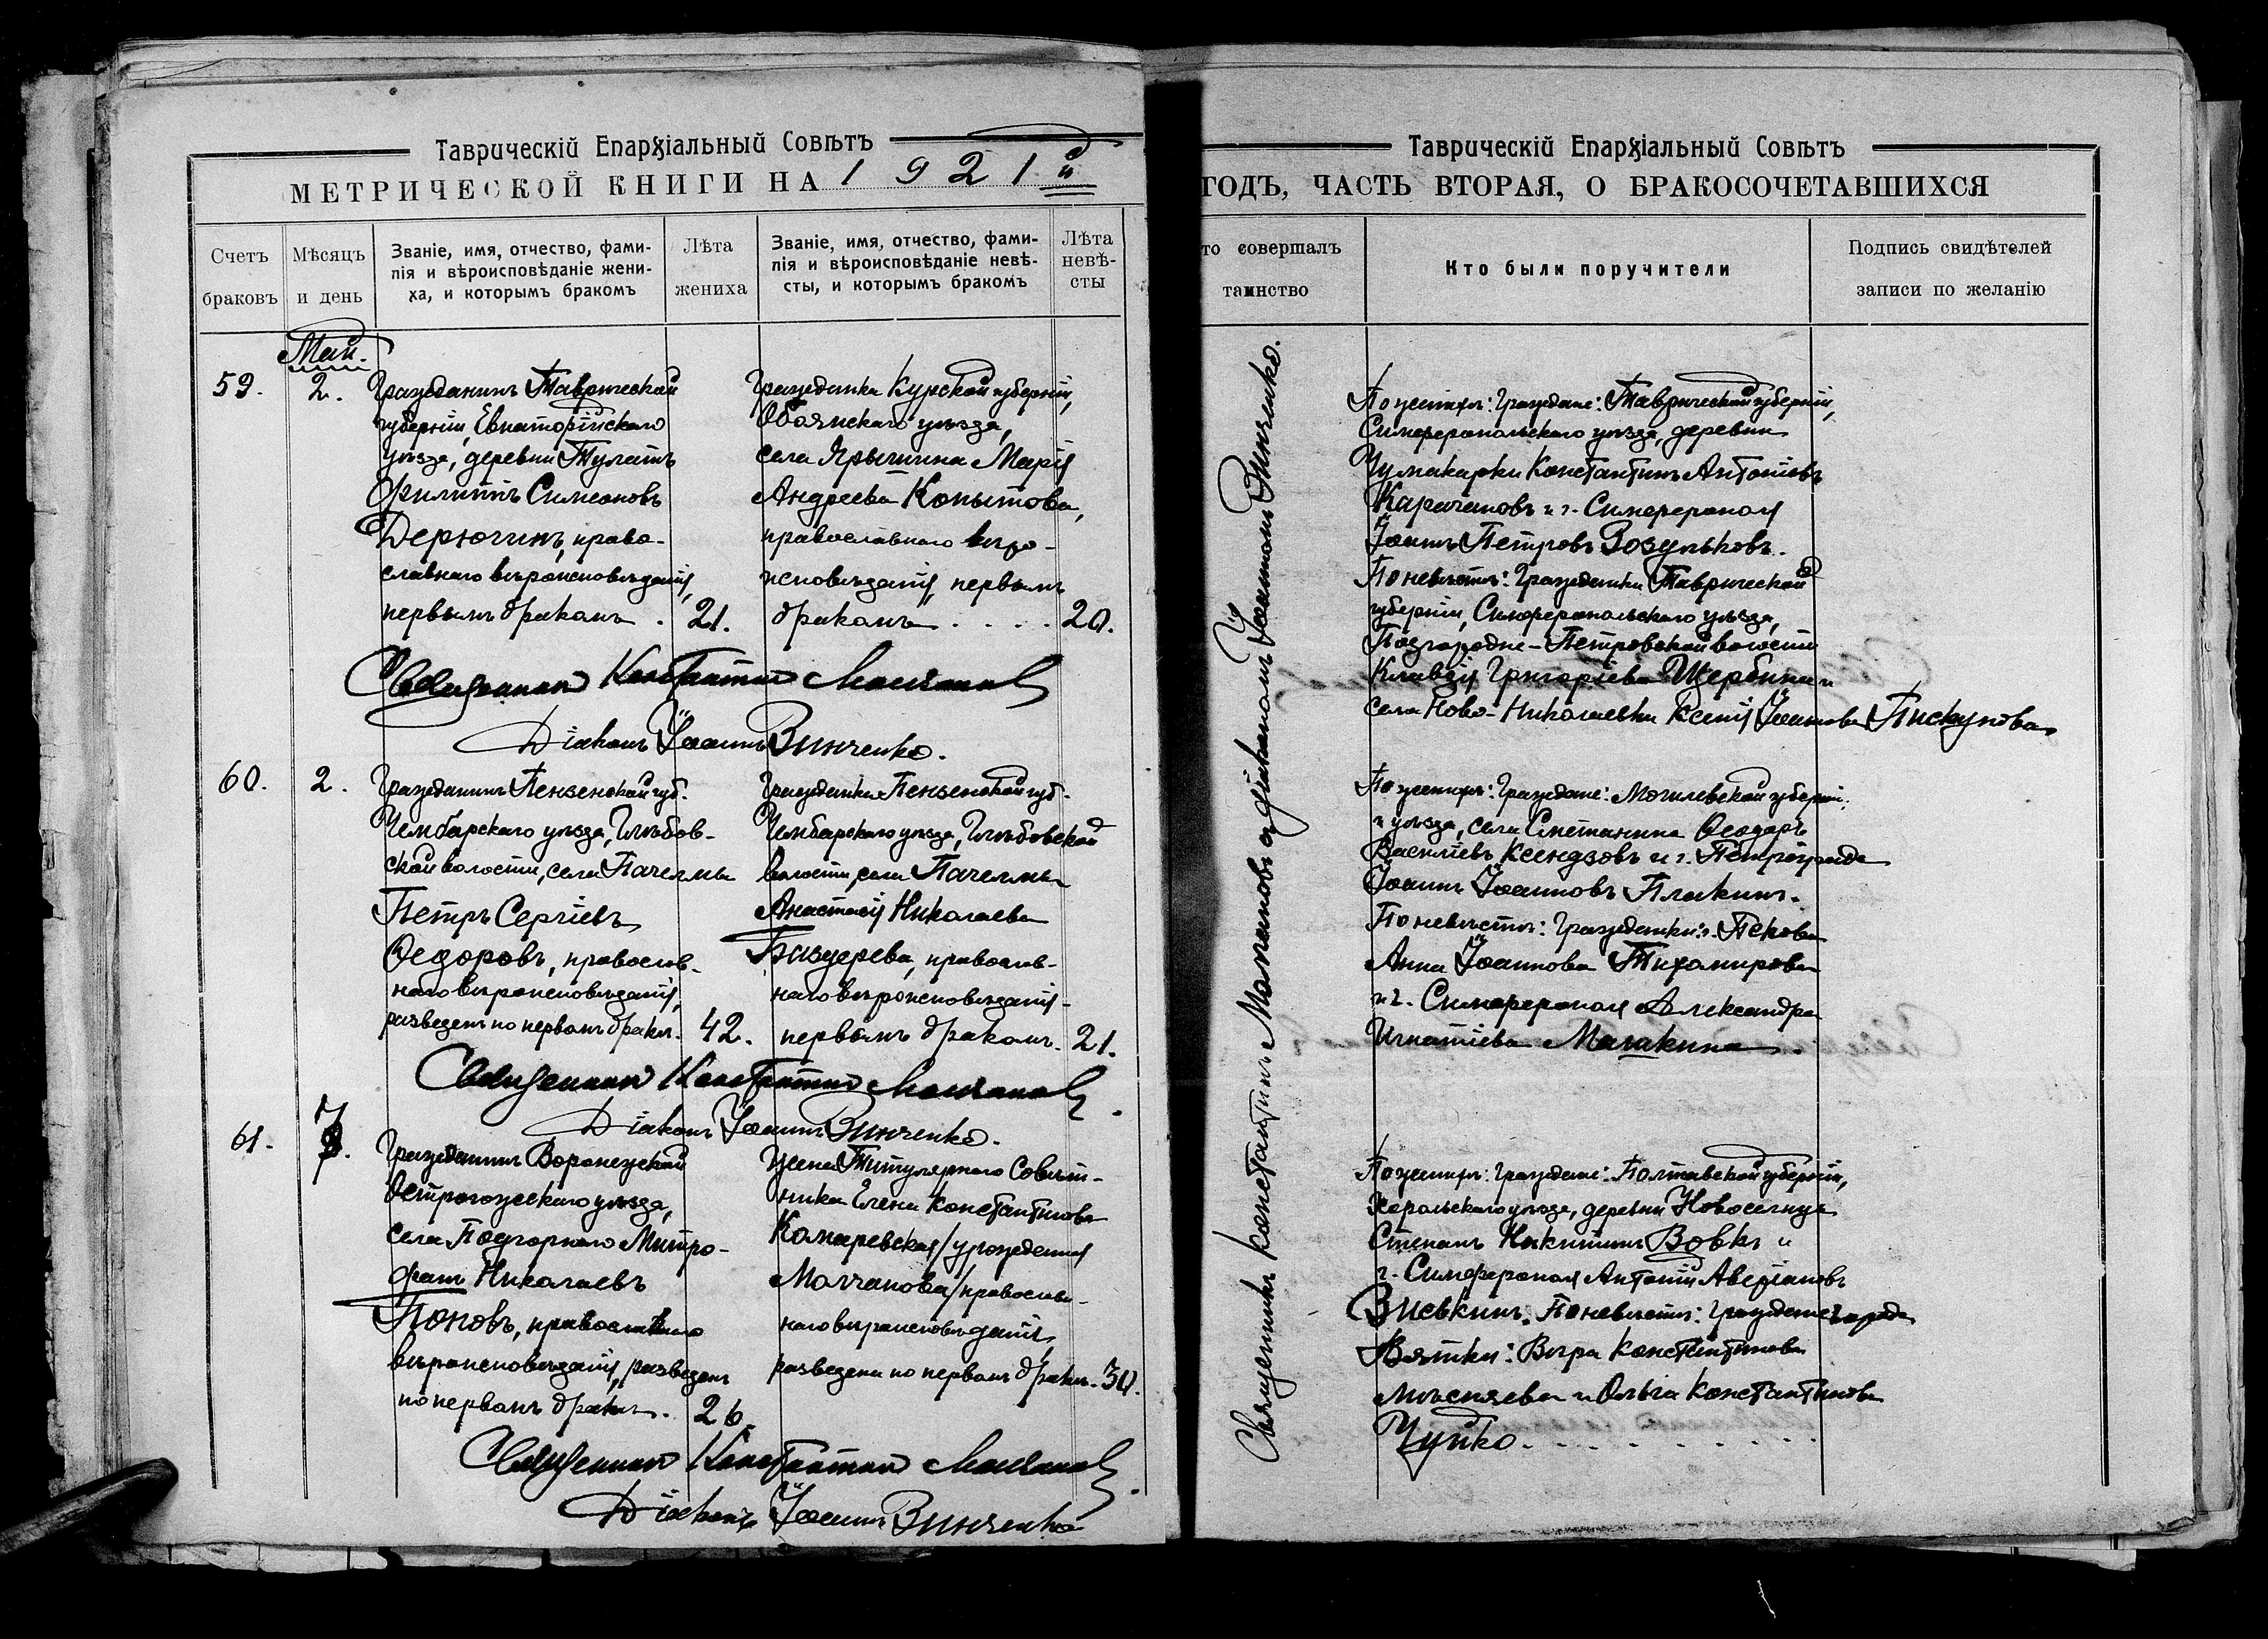 Таврическій Епархіальный Совѣтъ
МЕТРИЧЕСКОЙ КНИГИ НА 1921й
Счетъ браковъ
Мѣсяцъ и день
Званіе, имя, отчество, фами-
лія и вѣроисповѣданіе жени-
ха, и которымъ бракомъ
Лѣта жениха
Званіе, имя, отчество, фами-
лія и вѣроисповѣданіе невѣ-
сты, и которымъ бракомъ
Лѣта
невѣ-
сты
Май.
59.
2.
Гражданинъ Таврической
губерніи, Евпаторійскаго
уѣзда, деревни Тулатъ
Филиппъ Симеоновъ
Дерюгинъ, право-
славнаго вѣроисповѣданія,
первымъ бракомъ.
21.
Гражданка Курской губерніи,
Обоянскаго уѣзда,
села Ярыгина Марія
Андреева Копытова,
православнаго вѣро-
исповѣданія, первымъ
бракомъ . . . .
20.
Священникъ Константинъ Молчановъ
Діаконъ Іоаннъ Винченко.
60.
2.
Гражданинъ Пензенской губ.
Чембарскаго уѣзда, Глѣбов-
ской волости, села Пачелмы
Петръ Сергіевъ
Ѳедоровъ, православ-
наго вѣроисповѣданія,
разведенъ по первомъ бракѣ.
42.
Гражданка Пензенской губ.
Чембарскаго уѣзда, Глѣбовской
волости, села Пачелмы
Анастасія Николаева
православ-
наго вѣроисповѣданія
первымъ бракомъ.
21.
Священникъ Константинъ Молчановъ.
Діаконъ Іоаннъ Винченко.
61.
7.
Гражданинъ Воронежской
Острогожскаго уѣзда,
села Подгорнаго Митро-
фанъ Николаевъ
Поповъ, православнаго
вѣроисповѣданія, разведенъ
по первомъ бракѣ.
26.
Жена Титулярнаго Совѣт-
ника Елена Константинова
Комаревская /урожденная
Молчанова/ православ-
наго вѣроисповѣданія,
разведена по первомъ бракѣ.
30.
Священникъ Константинъ Молчановъ.
Діаконъ Іоаннъ Винченко
Таврическій Епархіальный Совѣтъ
ГОДЪ, ЧАСТЬ ВТОРАЯ, О БРАКОСОЧЕТАВШИХСЯ
то совершалъ
таинство
Кто были поручители
Подпись свидѣтелей
записи по желанію
Священникъ Константинъ Молчановъ съ діакономъ Іоанномъ Винченко.
По женихѣ: Граждане: Таврической губерніи,
Симферопольскаго уѣзда, деревни
Чумакарки Константинъ Антоніевъ
Карачановъ и г. Симферополя
Іоаннъ Петровъ Возульковъ.
По невѣстѣ: Гражданки Таврической
губерніи, Симферопольскаго уѣзда,
Подгородне-Петровской волости
Клавдія Григоріева Щербина и
села Ново-Николаевки Ксенія Іоаннова Пискунова
По женихѣ: Граждане: Могилевской губерніи
и уѣзда, села Сметанина Ѳеодоръ
Василіевъ Ксендзовъ и г. Петрограда
Іоаннъ Іоанновъ Плакинъ.
По невѣстѣ: Гражданки: г. Пскова
Анна Іоаннова Тихомирова
и г. Симферополя Александра
Игнатіева Малакина.
По женихѣ: Граждане: Полтавской губерніи,
Хорольскаго уѣзда, деревни Новоселицы
Степанъ Никитинъ Вовкъ и
г. Симферополя Антоній Аверіановъ
По невѣстѣ: Граждане города
Вятки: Вѣра Константинова
Мѣсняева и Ольга Константинова
Чуйко . . . . . . . . .